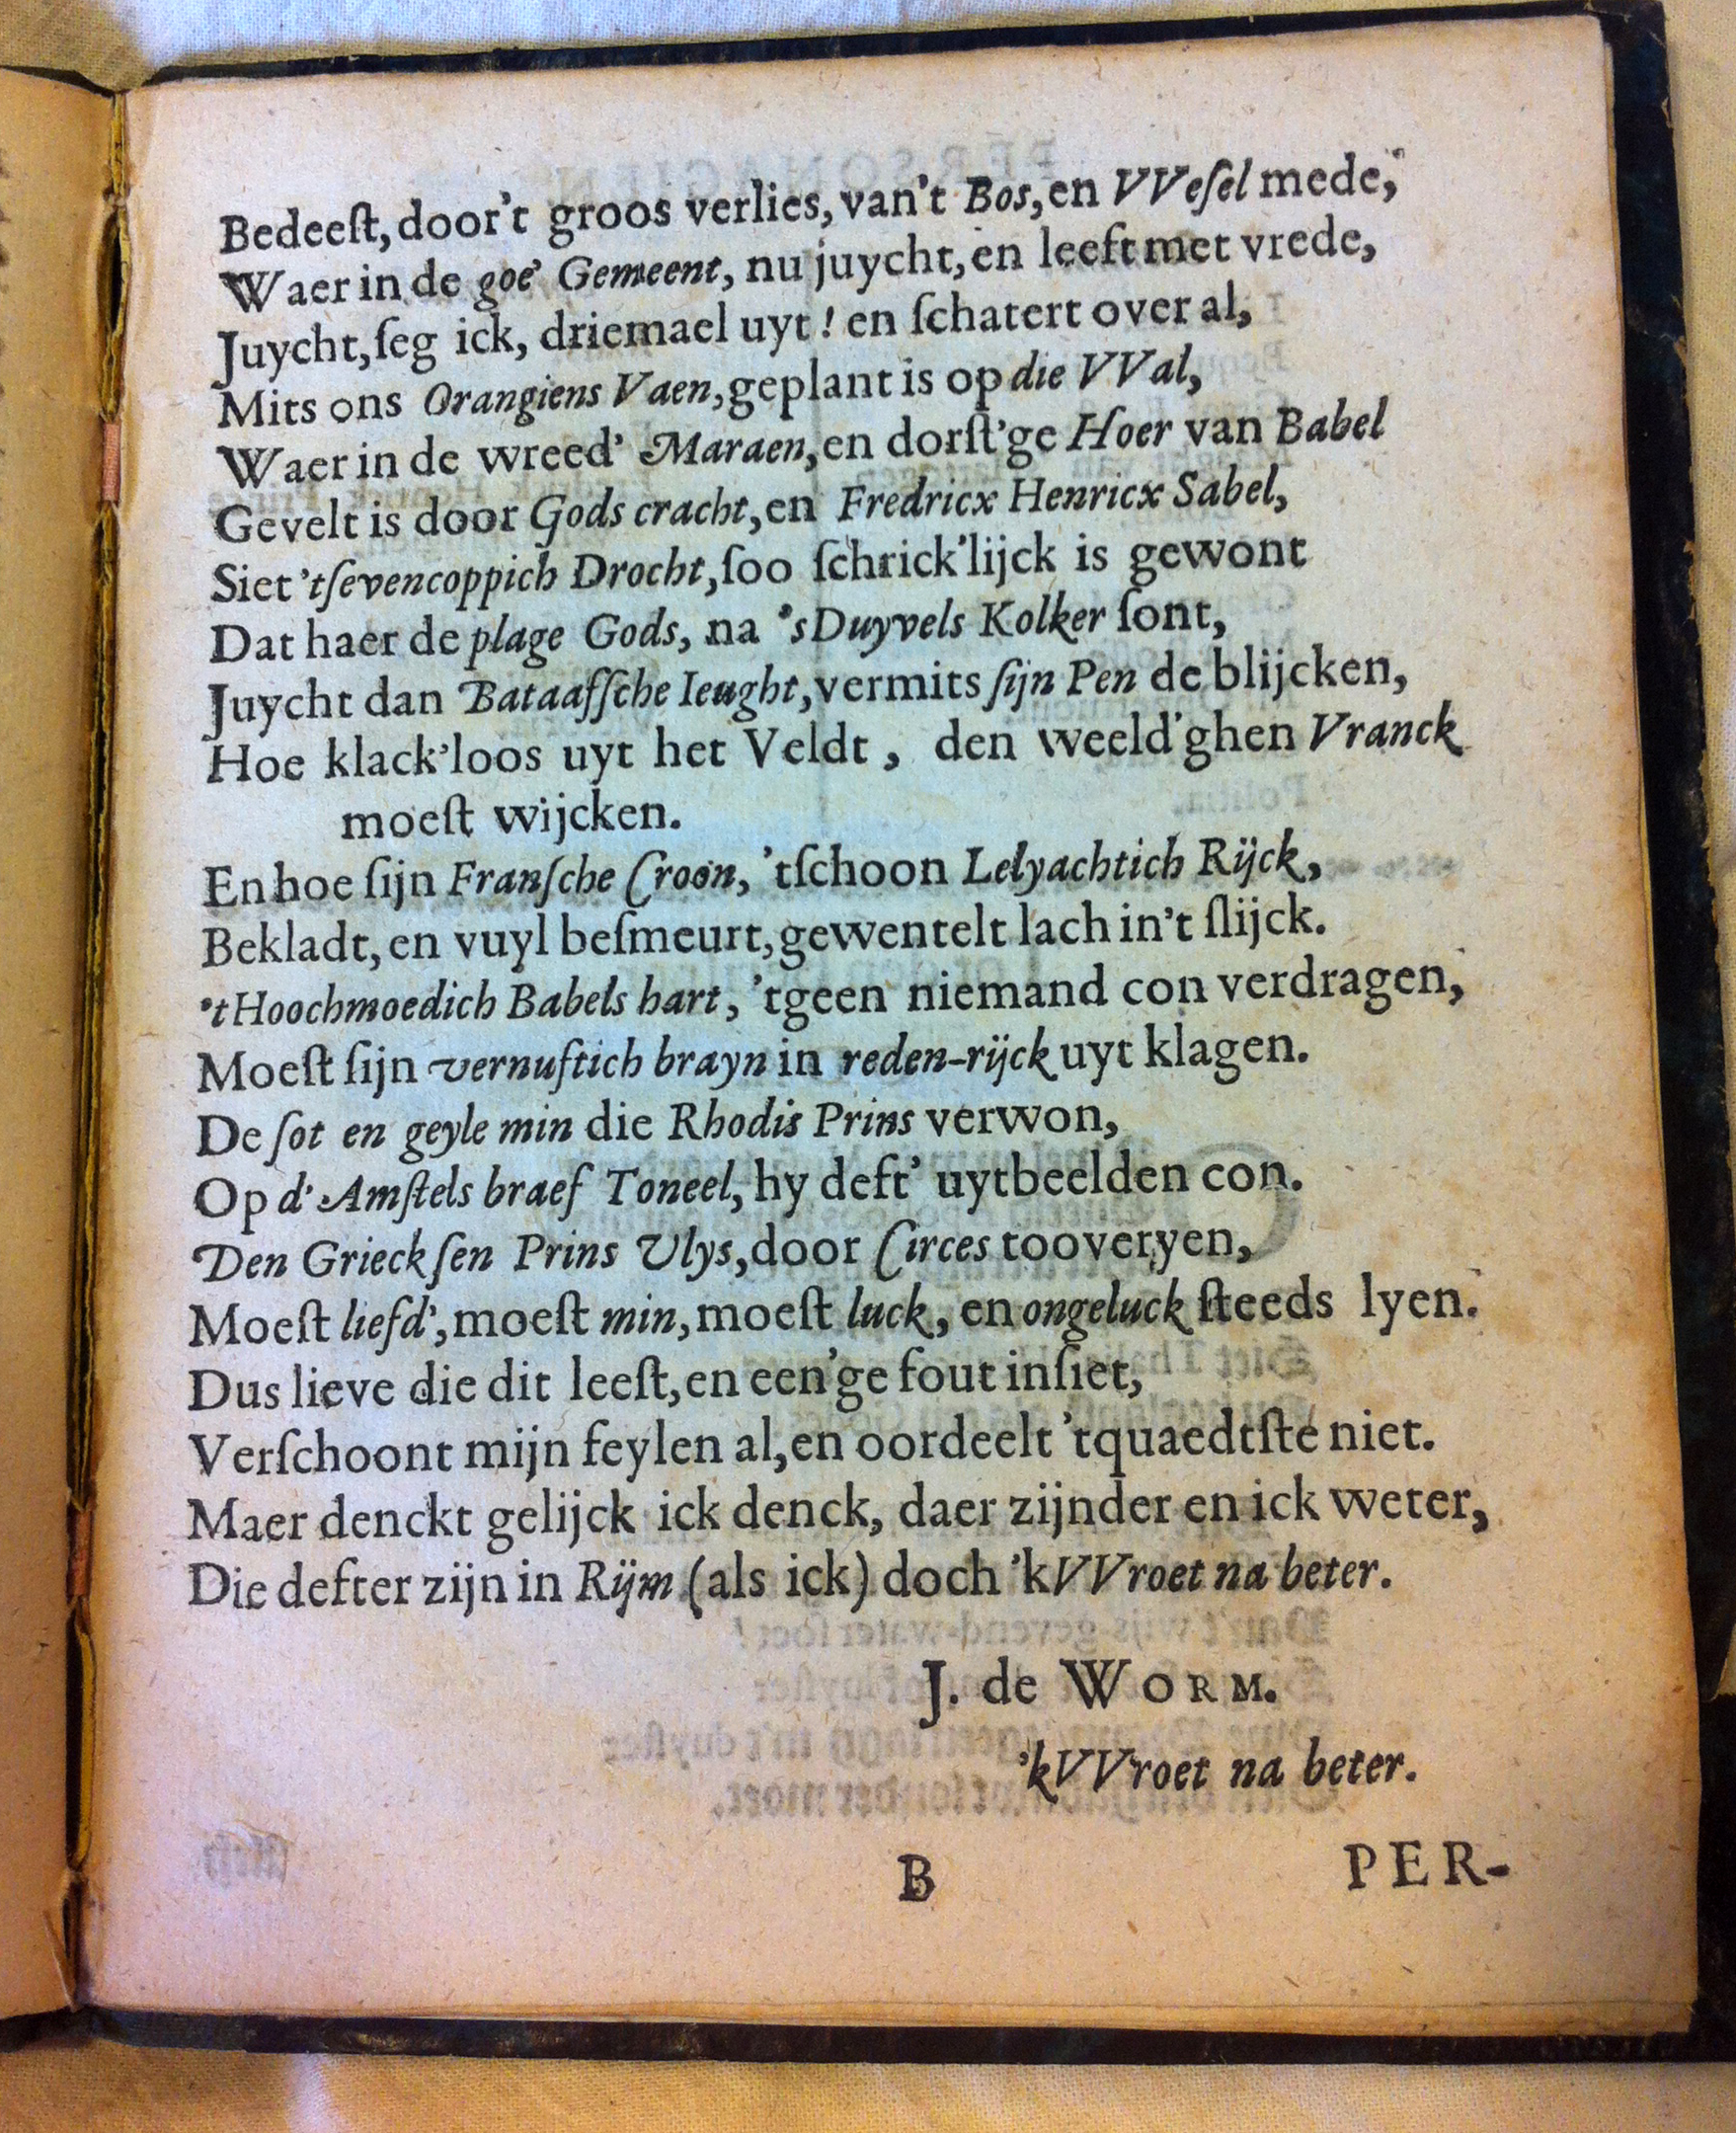 Bedeeſt, door't groos verlies, van't Bos, en VVeſel mede,
Waer in de goe' Gemeent, nu juycht, en leeft met vrede,
Juycht, ſeg ick, driemael uyt! en ſchatert over al,
Mits ons Orangiens Vaen, geplant is op die VVal,
Waer in de wreed' Maraen, en dorſt'ge Hoer van Babel
Gevelt is door Gods cracht, en Fredricx Henricx Sabel,
Siet 'tſevencoppich Drocht, ſoo ſchrick'lijck is gewont
Dat haer de plage Gods, na 's Duyvels Kolker ſont,
Juycht dan Bataafſche Ieught, vermits ſijn Pen de blijcken,
Hoe klack'loos uyt het Veldt, den weeld'ghen Vranck
moeſt wijcken.
En hoe ſijn Franſche Croon, 'tſchoon Lelyachtich Rijck,
Bekladt, en vuyl beſmeurt, gewentelt lach in't ſlijck.
't Hoochmoedich Babels hart, 'tgeen niemand con verdragen,
Moeſt ſijn vernuftich brayn in reden-rijck uyt klagen.
De ſot en geyle min die Rhodis Prins verwon,
Op d' Amſtels braef Toneel, hy deft' uytbeelden con.
Den Grieckſen Prins Vlys, door Circes tooveryen,
Moeſt liefd', moeſt min, moeſt luck, en ongeluck ſteeds lyen.
Dus lieve die dit leeſt, en een'ge fout inſiet,
Verſchoont mijn feylen al, en oordeelt 'tquaedtſte niet.
Maer denckt gelijck ick denck, daer zijnder en ick weter,
Die defter zijn in Rijm (als ick) doch 'kVVroet na beter.
J. de WORM.
'kVVroet na beter.
B PER-